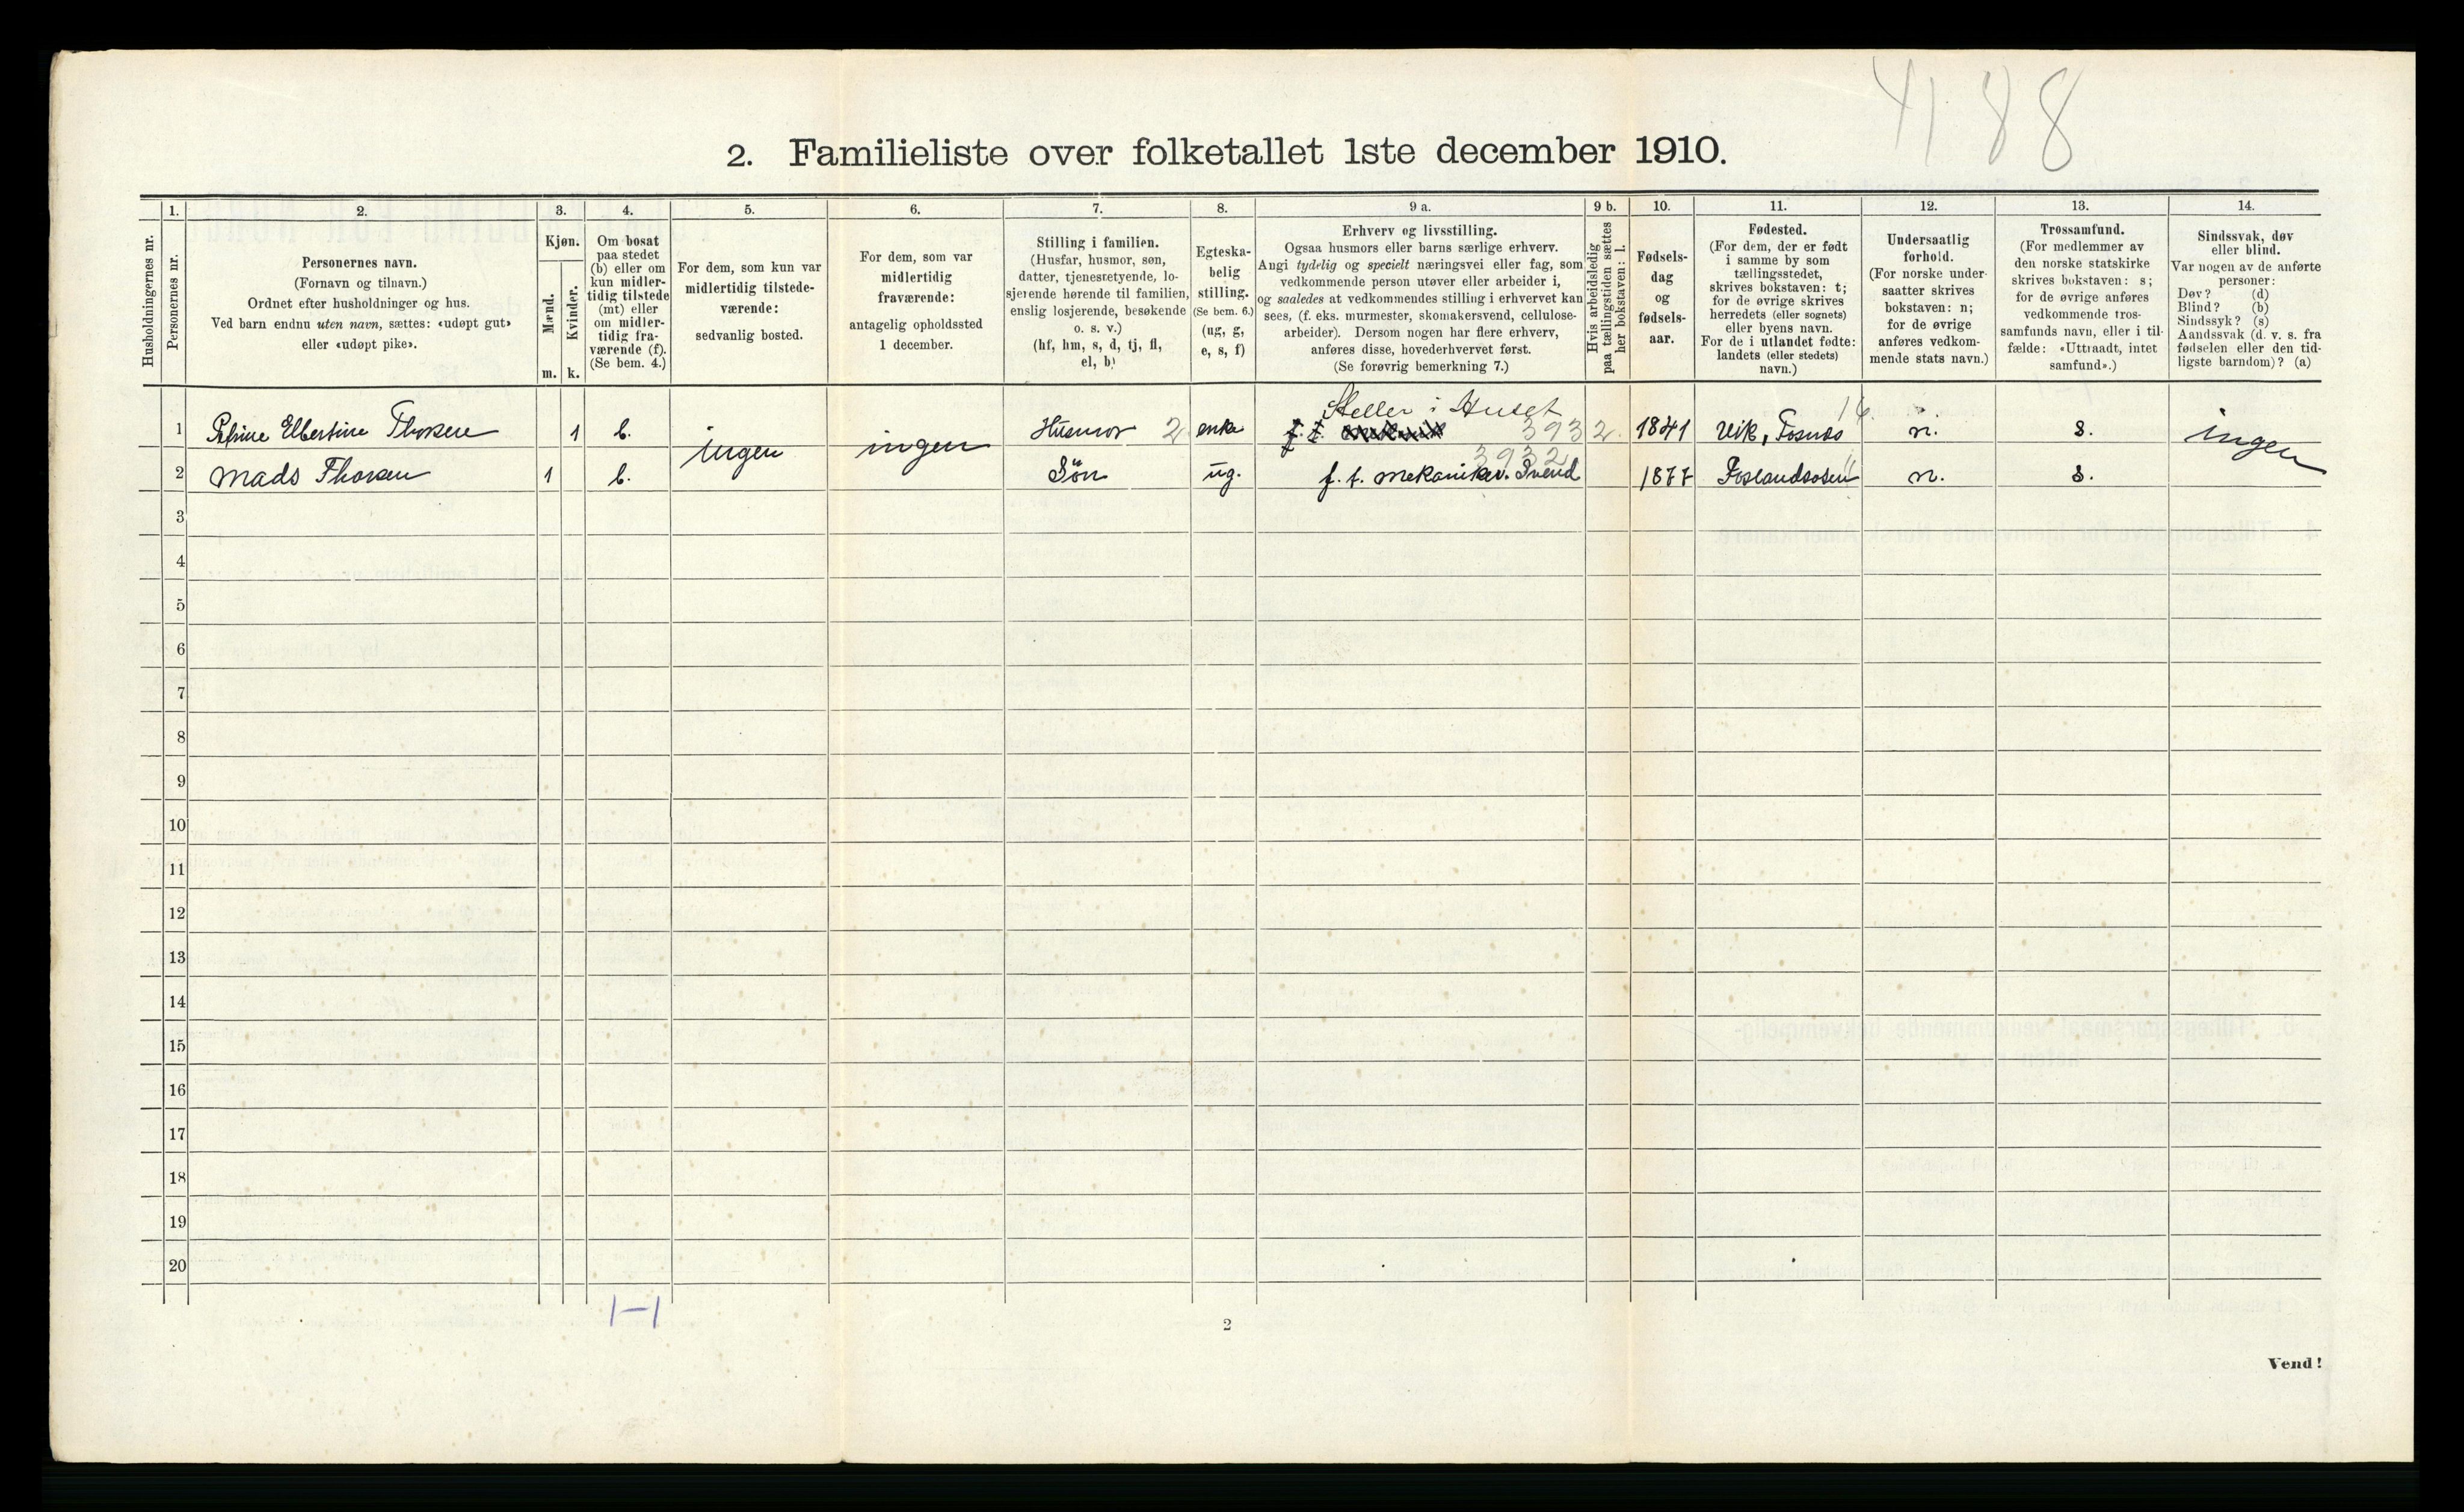 4188
2. Familieliste over folketallet 1ste december 1910.
Husholdningernes nr.
1.
Personernes nr.
2.
Personernes navn.
(Fornavn og tilnavn.)
Ordnet efter husholdninger og hus.
Ved barn endnu uten navn, sættes: «udøpt gut»
eller «udøpt pike».
3.
Kjøn.
Mænd.
Kvinder.
m. k.
4.
Om bosat
paa stedet
(b) eller om
kun midler-
tidig tilstede
(mt) eller
om midler-
tidig fra-
værende (f).
(Se bem. 4.)
5.
For dem, som kun var
midlertidig tilstede-
værende:
sedvanlig bosted.
6.
For dem, som var
midlertidig
fraværende:
antagelig opholdssted
1 december.
7.
Stilling i familien.
(Husfar, husmor, søn,
datter, tjenestetyende, lo-
sjerende hørende til familien,
enslig losjerende, besøkende
o. s. v.)
(hf, hm, s, d, tj, fl,
el, b)
8.
Egteska-
belig
stilling.
(Se bem. 6.)
(ug, g,
e, s, f)
9 a.
Erhverv og livsstilling.
Ogsaa husmors eller barns særlige erhverv.
Angi tydelig og specielt næringsvei eller fag, som
vedkommende person utøver eller arbeider i,
og saaledes at vedkommendes stilling i erhvervet kan
sees, (f. eks. murmester, skomakersvend, cellulose-
arbeider). Dersom nogen har flere erhverv,
anføres disse, hovederhvervet først.
(Se forøvrig bemerkning 7.)
9 b.
Hvis arbeidsledig
paa tællingstiden sættes
her bokstaven: l.
10.
Fødsels-
dag
og
fødsels-
aar.
11.
Fødested.
(For dem, der er født
i samme by som
tællingsstedet,
skrives bokstaven: t;
for de øvrige skrives
herredets (eller sognets)
eller byens navn.
For de i utlandet fødte:
landets (eller stedets)
navn.)
12.
Undersaatlig
forhold.
(For norske under-
saatter skrives
bokstaven: n;
for de øvrige
anføres vedkom-
mende stats navn.)
13.
Trossamfund.
(For medlemmer av
den norske statskirke
skrives bokstaven: s;
for de øvrige anføres
vedkommende tros-
samfunds navn, eller i til-
fælde: «Uttraadt, intet
samfund».)
14.
Sindssvak, døv
eller blind.
Var nogen av de anførte
personer:
Døv? (d)
Blind? (b)
Sindssyk? (s)
Aandssvak (d. v. s. fra
fødselen eller den tid-
ligste barndom)? (a)
Steller i Huset
1 Elbertine Thorsen 1 b. ingen ingen Husmor 2 enke 3932. 1841 Vik, Fosnæs 16. n. s. ingen
3932
2 Mads Thorsen 1 b. Søn ug. f. t. mekaniker. Svend 1877 Foslandsosen " n. s.
3
4
5
6
7
8
9
10
11
12
13
14
15
16
17
18
19
20
1-1
2
Vend!